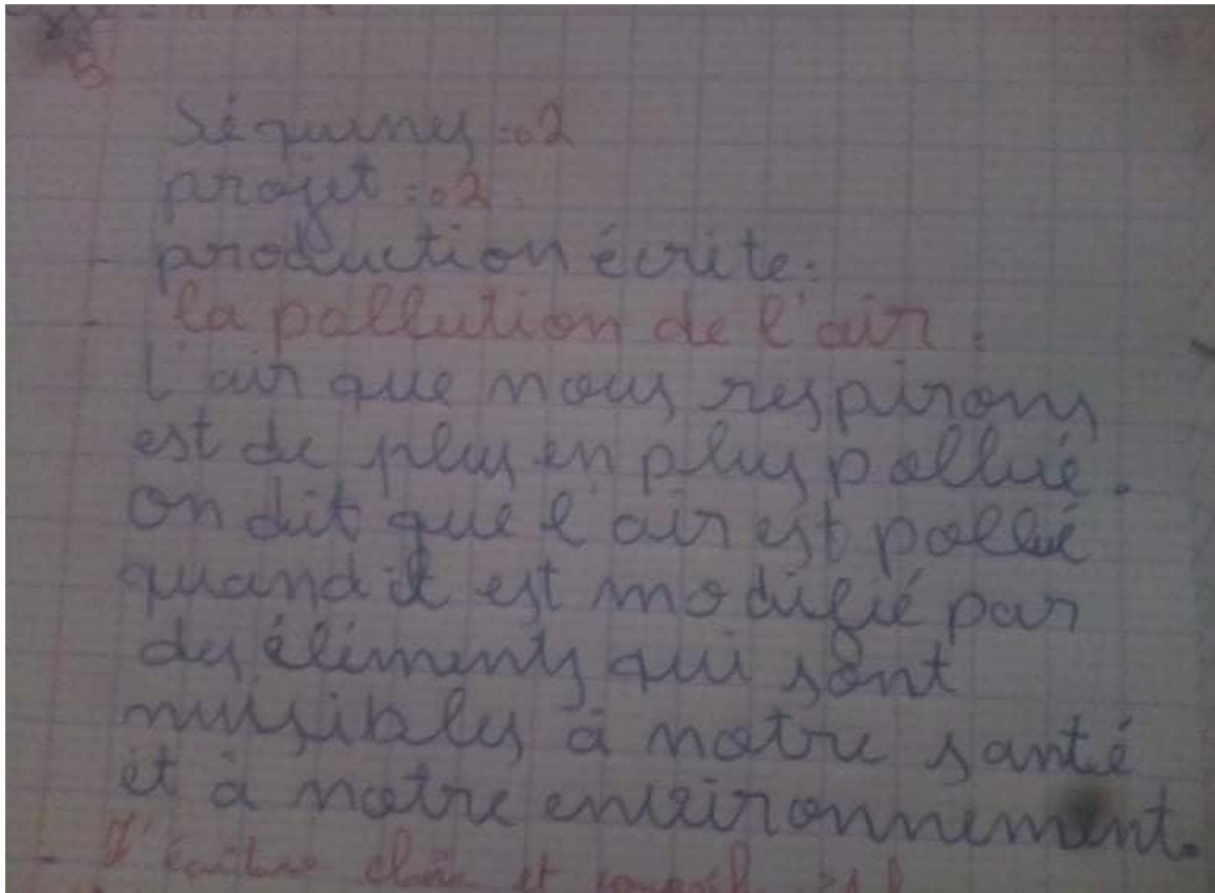 Séquence : 02
projet : 02.
- production écrite :
- la pollution de l'air :
L'air que nous respirons
est de plus en plus pollué.
on dit que l'air est pollué
quand il est modifié par
des éléments qui sont
nuisibles à notre santé
et à notre environnement.
- et